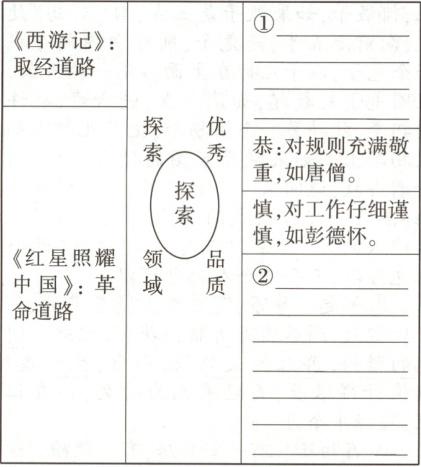 《西游记》：
取经道路
《红星照耀
中国》：革
命道路
探索 优秀
探索
领域 品质
①
恭：对规则充满敬
重，如唐僧。
慎，对工作仔细谨
慎，如彭德怀。
②